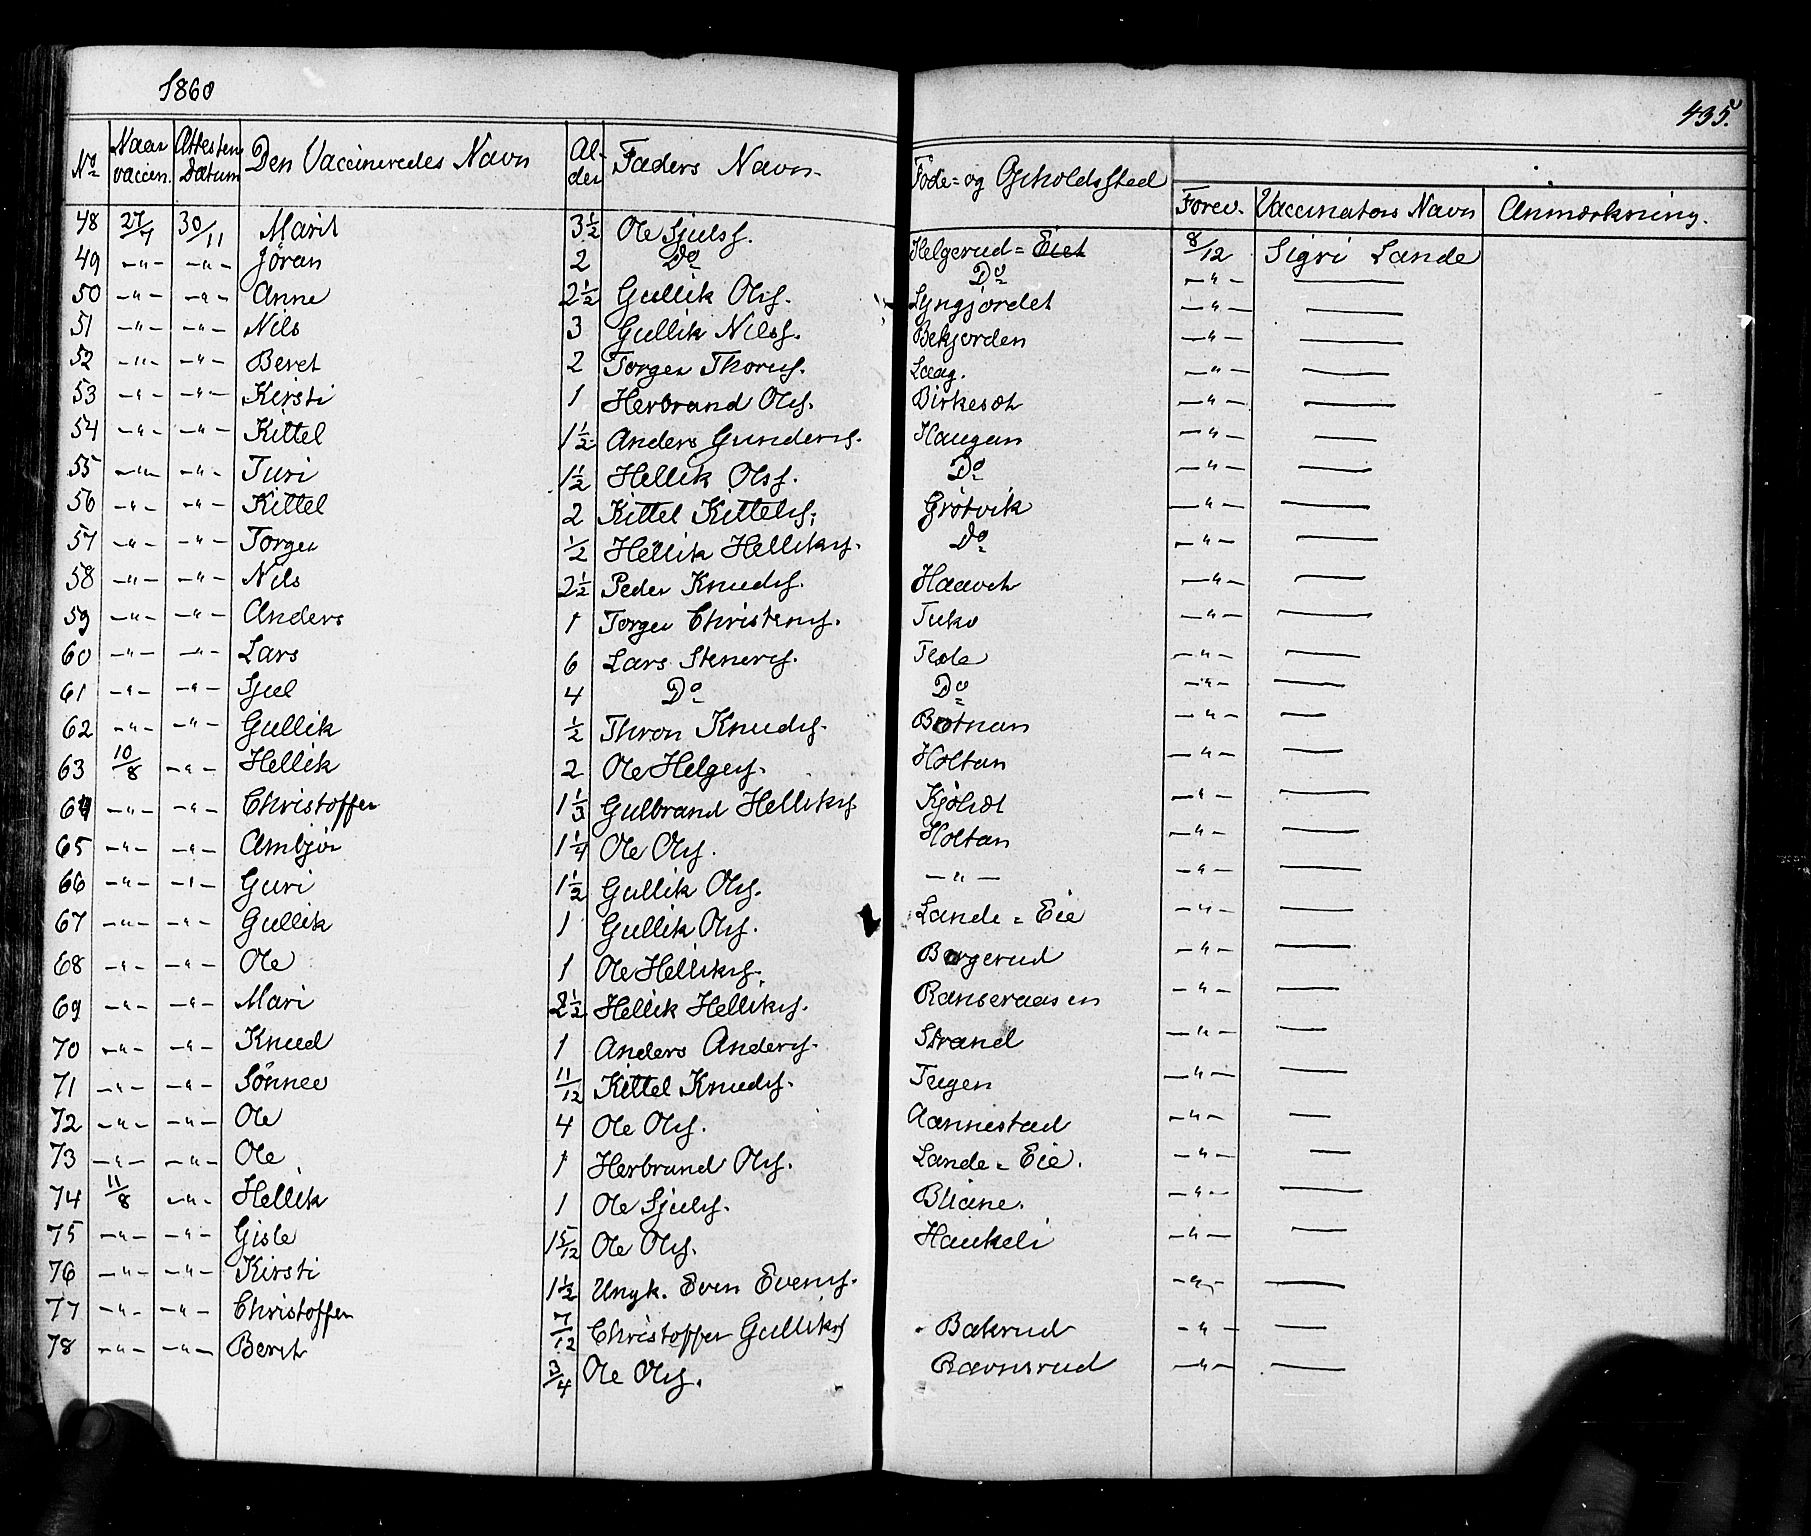 1860
435.
No Naar vaccin. Attesten Datum Den Vaccineredes Navn Alder Faders Navn Føde= og Opholdssted Forev. Vaccinators Navn Anmærkning.
48 27/7 30/11 Marit 3½ Ole Sjulss. Helgerud = Eiet 8/12 Sigri Lande
49 -"- -"- Jøran 2 Do Do -"- —
50 -"- -"- Anne 2½ Gullik Olss. Lyngjordet -"- —
51 -"- -"- Nils 3 Gullik Nilss. Bekjorden -"- —
52 -"- -"- Beret 2 Torger Thorss. Laag. -"- —
53 -"- -"- Kirsti 1 Herbrand Olss. Birkesæt -"- —
54 -"- -"- Kittel 1½ Anders Gunderss. Haugan -"- —
55 -"- -"- Turi 1½ Hellik Olss. Do -"- —
56 -"- -"- Kittel 2 Kittel Kittelss. Grötvik -"- —
57 -"- -"- Torger ½ Hellik Hellikss. Do -"- —
58 -"- -"- Nils 2½ Peder Knudss. Haavet -"- —
59 -"- -"- Anders 1 Torger Christenss. -"- —
60 -"- -"- Lars 6 Lars Stenerss. -"- —
61 -"- -"- Sjul 4 Do Do -"- —
62 -"- -"- Gullik ½ Thron Knudss. Botnan -"- —
63 10/8 -"- Hellik 2 Ole Helgess. Holtan -"- —
64 -"- -"- Christoffer 1⅓ Gulbrand Hellikss. Kjølset -"- —
65 -"- -"- Ambjør 1¼ Ole Olss. Holtan -"- —
66 -"- -"- Guri 1½ Gullik Olss. -"- -"- —
67 -"- -"- Gullik 1 Gullik Olss. Lande = Eie -"- —
68 -"- -"- Ole 1 Ole Hellikss. Borgerud -"- —
69 -"- -"- Mari 2½ Hellik Hellikss. -"- —
70 -"- -"- Knud 1 Anders Anderss. Strand -"- —
71 -"- -"- Sönnev 11/12 Kittel Knudss. Teigen -"- —
72 -"- -"- Ole 4 Ole Olss. Aannestad -"- —
73 -"- -"- Ole 1 Herbrand Olss. Lande = Eie. -"- —
74 11/8 -"- Hellik 1 Ole Sjulss. Bliane. -"- —
75 -"- -"- Gisle 1 5/12 Ole Olss. Haukeli -"- —
76 -"- -"- Kirsti 1½ Ungk. Even Evenss. -"- —
77 -"- -"- Christoffer 7/12 Christoffer Gullikss Bakrud -"- —
78 -"- -"- Beret 3/4 Ole Olss. Ravnsrud -"- —